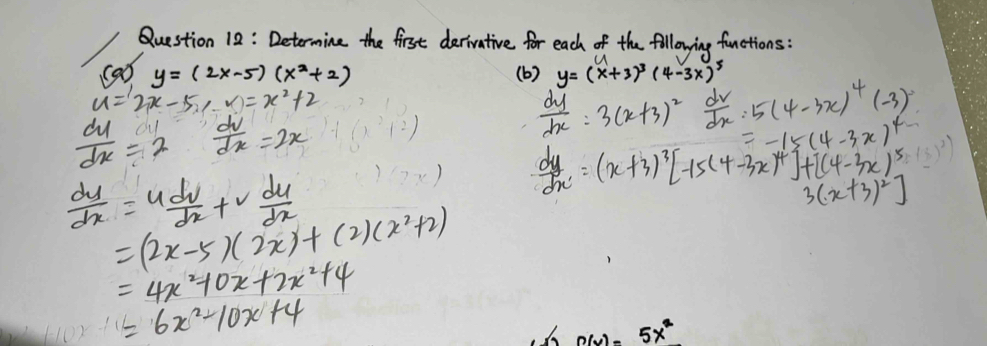 Question 12: Determine the first derivative for each of the following functions:
(a) y = (2x-5)(x²+2)
u = 2x-5, v = x²+2
du/dx = 2 dv/dx = 2x
dy/dx = u dv/dx + v du/dx
= (2x-5)(2x) + (2)(x²+2)
= 4x²-10x+2x²+4
= 6x²-10x+4
(b) y = (x+3)³ (4-3x)⁵
u v
du/dx = 3(x+3)² dv/dx = 5(4-3x)⁴ (-3)
= -15(4-3x)⁴
dy/dx = (x+3)³[-15(4-3x)⁴]+[(4-3x)⁵
3(x+3)²]
5x²